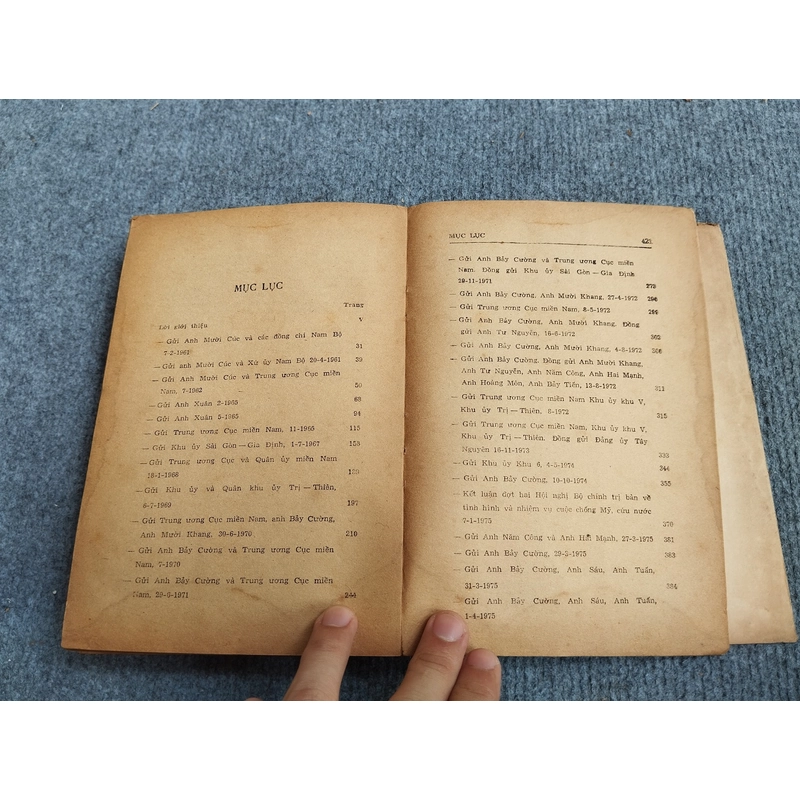 MỤC LỤC
Trang
Lời giới thiệu V
— Gửi Anh Mười Cúc và các đồng chí Nam Bộ
7-2-1961 31
— Gửi anh Mười Cúc và Xứ ủy Nam Bộ 20-4-1961 39
— Gửi Anh Mười Cúc và Trung ương Cục miền
Nam, 7-1962 50
— Gửi Anh Xuân 2-1965 68
— Gửi Anh Xuân 5-1965 94
— Gửi Trung ương Cục miền Nam, 11-1965 115
— Gửi Khu ủy Sài Gòn — Gia Định, 1-7-1967 158
— Gửi Trung ương Cục và Quân ủy miền Nam
18-1-1968
— Gửi Khu ủy và Quân khu ủy Trị — Thiên,
6-7-1969 197
— Gửi Trung ương Cục miền Nam, anh Bảy Cường,
Anh Mười Khang, 39-6-1970 210
— Gửi Anh Bảy Cường và Trung ương Cục miền
Nam, 7-1970
— Gửi Anh Bảy Cường và Trung ương Cục miền
Nam, 29-6-1971 244
MỤC LỤC 423
— Gửi Anh Bảy Cường và Trung ương Cục miền
Nam. Đồng gửi Khu ủy Sài Gòn — Gia Định
29-11-1971 273
— Gửi Anh Bảy Cường, Anh Mười Khang, 27-4-1972 296
— Gửi Trung ương Cục miền Nam, 8-5-1972 299
— Gửi Anh Bảy Cường, Anh Mười Khang. Đồng
gửi Anh Tư Nguyễn, 16-6-1972 302
— Gửi Anh Bảy Cường, Anh Mười Khang, 4-8-1972 306
— Gửi Anh Bảy Cường. Đồng gửi Anh Mười Khang,
Anh Tư Nguyễn, Anh Năm Công, Anh Hai Mạnh,
Anh Hoàng Môn, Anh Bảy Tiến, 13-8-1972 311
— Gửi Trung ương Cục miền Nam Khu ủy khu V,
Khu ủy Trị — Thiên, 8-1972 315
— Gửi Trung ương Cục miền Nam, Khu ủy khu V,
Khu ủy Trị — Thiên. Đồng gửi Đảng ủy Tây
Nguyên 16-11-1973 333
— Gửi Khu ủy Khu 6, 4-3-1974 344
— Gửi Anh Bảy Cường, 10-10-1974 355
— Kết luận đợt hai Hội nghị Bộ chính trị bàn về
tình hình và nhiệm vụ cuộc chống Mỹ, cứu nước
7-1-1975 370
— Gửi Anh Năm Công và Anh Hai Mạnh, 27-3-1975 381
— Gửi Anh Bảy Cường, 29-3-1975 383
— Gửi Anh Bảy Cường, Anh Sáu, Anh Tuấn,
31-3-1975 384
Gửi Anh Bảy Cường, Anh Sáu, Anh Tuấn,
1-4-1975